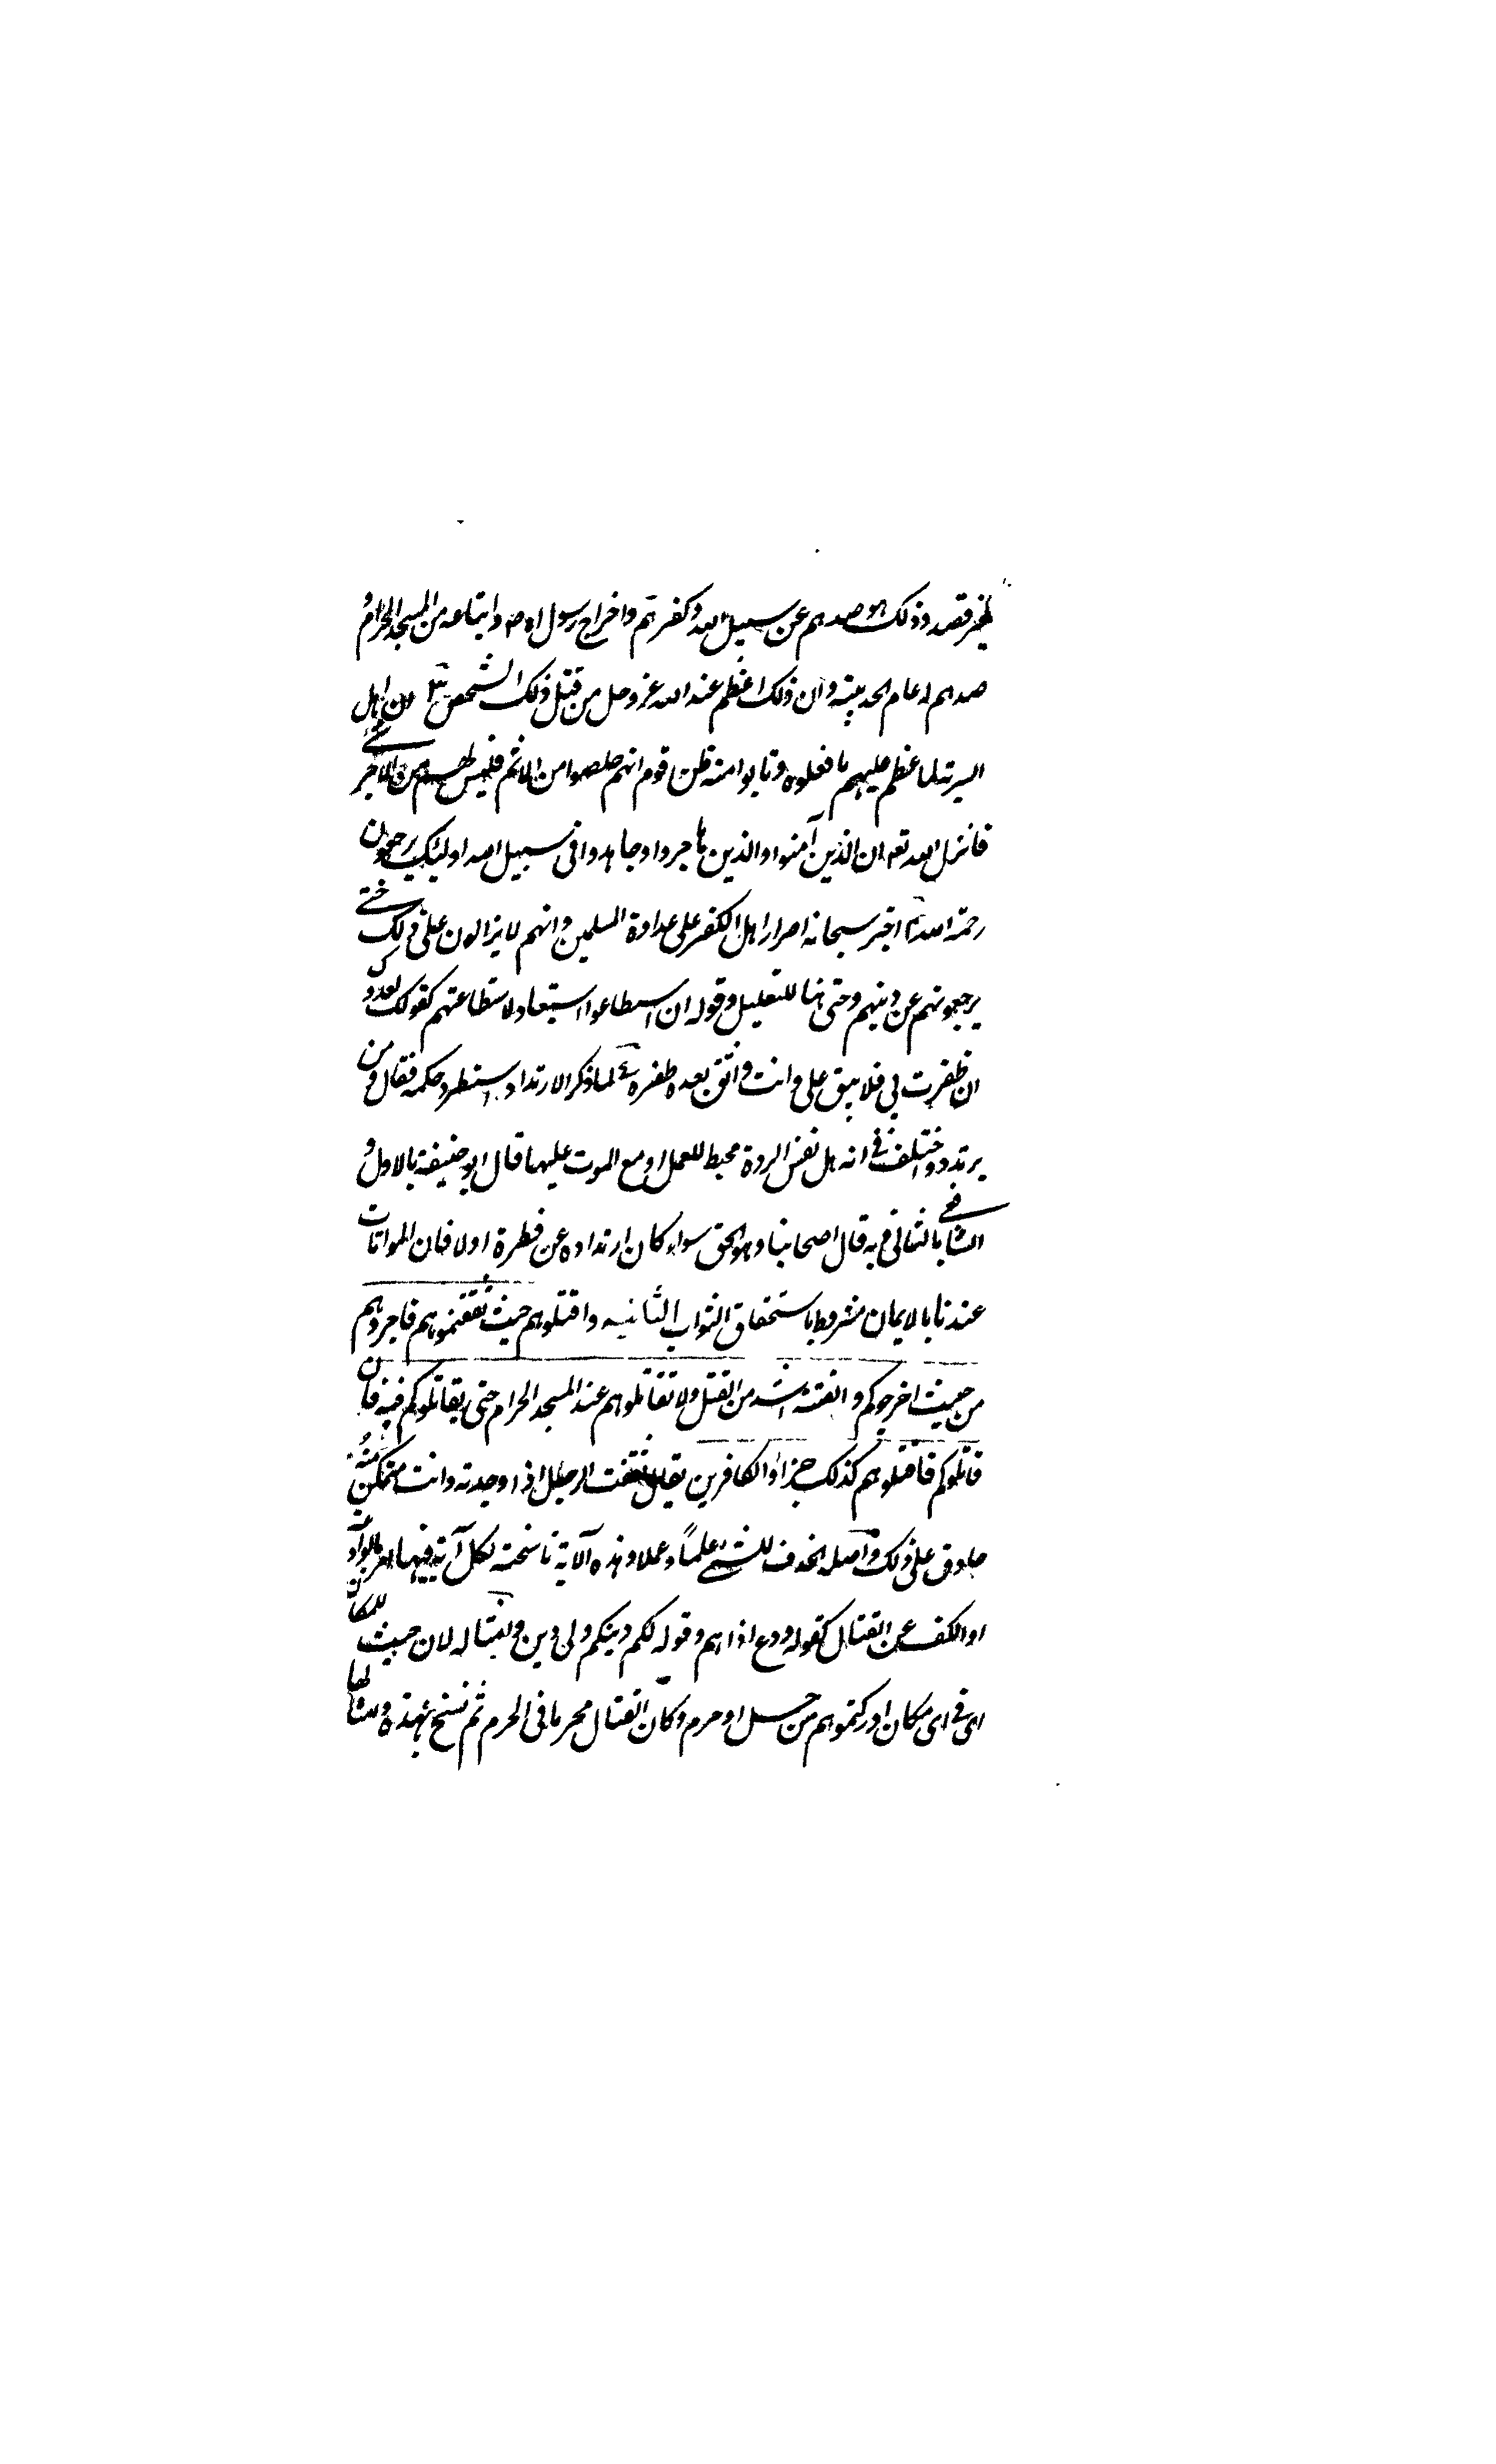 لخير قصد وذلك هو صدهم عن سبيل الله وكفرهم واخراج رسول الله ص واتباعه من المسجد الحرام و
صدهم له عام الحديبية وان ذلك اعظم عند الله عز وجل من قتل ذلك الشخص ٣ ان اهل
السرية لما عظم عليهم ما فعلوه وتابوا منه ظن قوم انهم خلصوا من الاثم فليس لهم شئ من الاجر
فانزل الله تعه ان الذين آمنوا والذين هاجروا وجاهدوا فى سبيل الله اولئك يرجون
رحمة الله اخبر سبحانه اصرار اهل الكفر على عداوة المسلمين وانهم لا يزالون على ذلك حتى
يرجعونهم عن دينهم وحتى هنا للتعليل وقوله ان استطاعوا استبعاد لاستطاعتهم كقولك لعدوك
ان ظفرت بى فلا تبق على وانت واثق بعدم ظفره ٤ لما ذكر الارتداد استطرد حكمه فقال ومن
يرتدد واختلف فى انه هل نفس الردة محبط للعمل او مع الموت عليها قال ابو حنيفة بالاول و
الشافعى بالثانى وبه قال اصحابنا وهو الحق سواء كان ارتداده عن فطرة اولا فان الموافات
عندنا بالايمان مشروط باستحقاق الثواب الثانيه واقتلوهم حيث ثقفتموهم واخرجوهم
من حيث اخرجوكم والفتنة اشد من القتل ولا تقاتلوهم عند المسجد الحرام حتى يقاتلوكم فيه فان
قاتلوكم فاقتلوهم كذلك جزاؤ الكافرين يقال ثقفت الرجل اذا وجدته وانت متمكن منه
حاذق على ذلك واصله الحذف للشئ علماً وعملا وهذه الآية ناسخة لكل آية فيها امر بالموادعة
او الكف عن القتال كقوله ودع اذاهم وقوله لكم دينكم ولى دين لان حيث للمكان
اى فى اى مكان ادركتموهم من حل او حرم وكان القتال محرما فى الحرم ثم نسخ بهذه